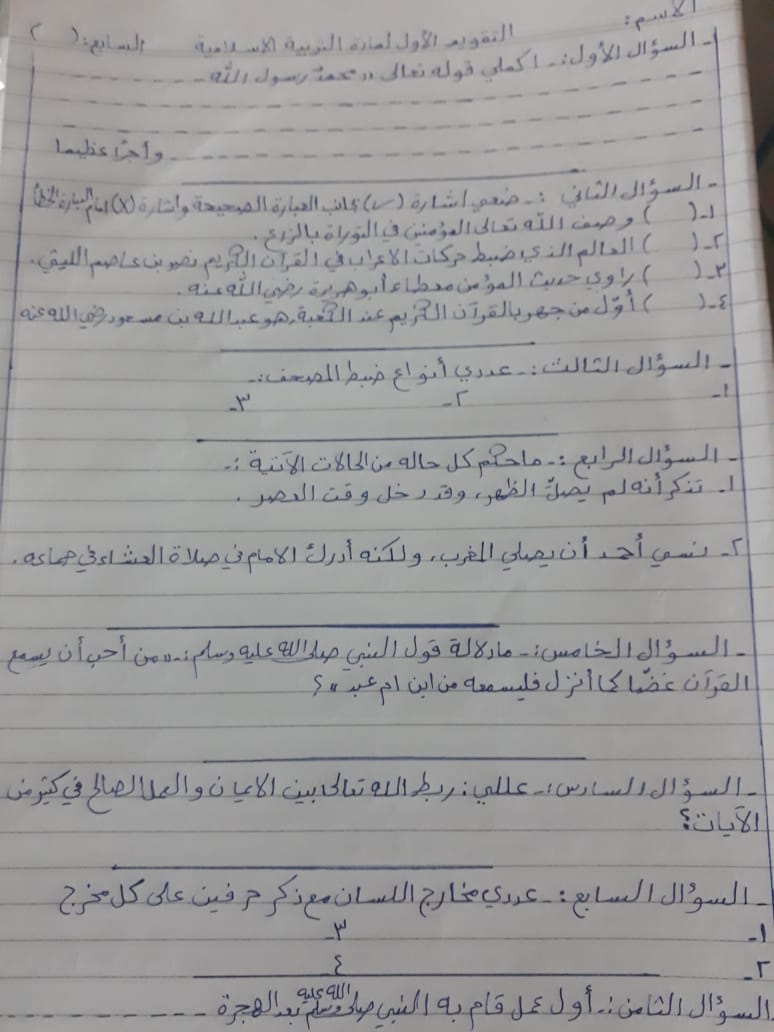 الاسم:
التقويم الأول لمادة التربية الاسلامية السابع: ( )
- السؤال الأول:- اكملي قوله تعالى «محمدٌ رسول الله
وأجرًا عظيما
- السؤال الثاني :- ضعي اشارة (✓) بجانب العبارة الصحيحة واشارة (X) امام العبارة الخطأ
١- ( ) وصف الله تعالى المؤمنين في التوراة بالزرع.
٢- ( ) العالم الذي ضبط حركات الاعراب في القرآن الكريم نصر بن عاصم الليثي.
٣- ( ) راوي حديث المؤمن معطاء أبو هريرة رضي الله عنه.
٤- ( ) أوّل من جهر بالقرآن الكريم عند الكعبة، هو عبد الله بن مسعود رضي الله عنه
- السؤال الثالث:- عددي أنواع ضبط المصحف:-
١- ٢- ٣-
- السؤال الرابع :- ماحكم كل حاله من الحالات الآتية :-
١- تذكر أنه لم يصلِّ الظهر، وقد دخل وقت العصر .
٢- نسي أحمد أن يصلي المغرب، ولكنه أدرك الامام في صلاة العشاء في جماعه .
- السؤال الخامس:- مادلالة قول النبي صلى الله عليه وسلم:- «من أحب أن يسمع
القرآن غضًّا كما أنزل فليسمعه من ابن ام عبد»؟
- السؤال السادس:- عللي: ربط الله تعالى بين الايمان والعمل الصالح في كثير من
الآيات؟
- السؤال السابع :- عددي مخارج اللسان مع ذكر حرفين على كل مخرج
١- ٣-
٢- ٤
السؤال الثامن:- أول عمل قام به النبي صلى الله عليه وسلم بعد الهجرة